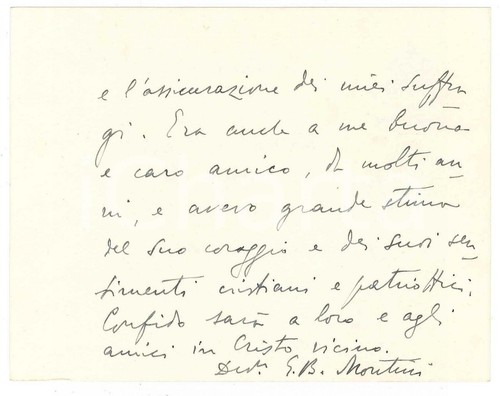 e l'assicurazione dei miei suffra
gi. Era anche a me buono
e caro amico, da molti an-
ni, e avevo grande stima
del suo coraggio e dei suoi sen-
timenti cristiani e patriottici.
Confido sarà a loro e agli
amici in Cristo vicino.
Dev. G. B. Montini